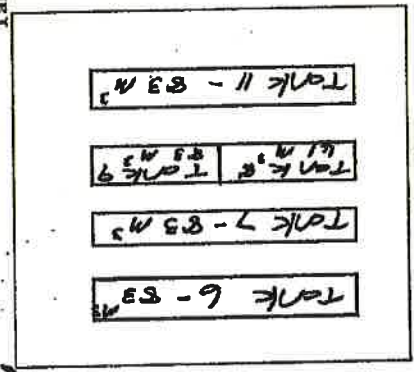 Tank 6 - 83 M³
Tank 7 - 83 M³
Tank 8 Tank 9
M³ 83 M³
Tank 11 - 83 M³